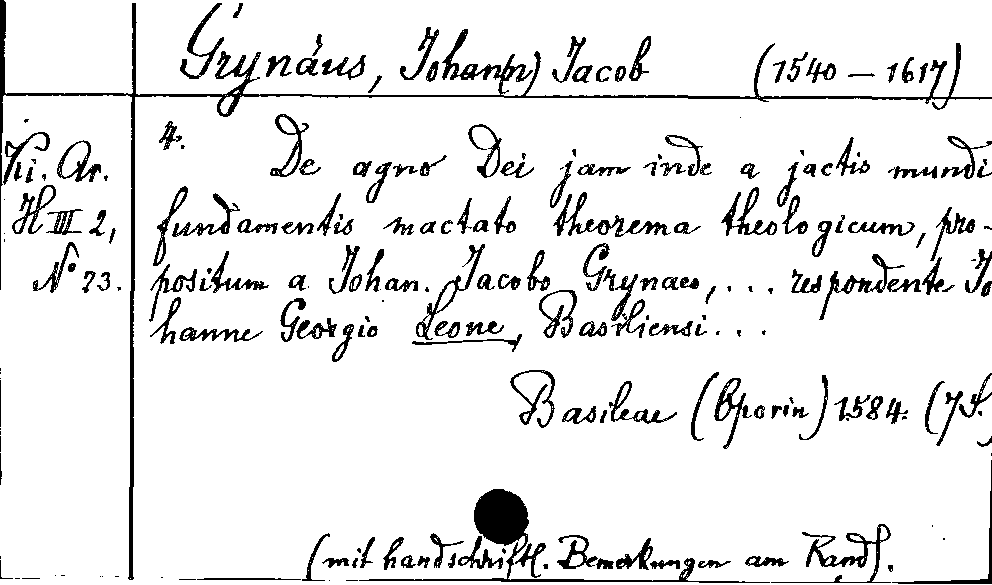 Grynäus, Johan(n) Jacob (1540 – 1617)
4. De agno Dei jam inde a jactis mundi
Ki. Ar.
H III 2,
fundamentis mactato theorema theologicum, pro-
No 23.
positum a Johan. Jacobo Grynaeo, ... respondente Jo
hanne Georgio Leone, Basiliensi...
Basileae (Oporin) 1584. (7 S.)
(mit handschriftl. Bemerkungen am Rand).